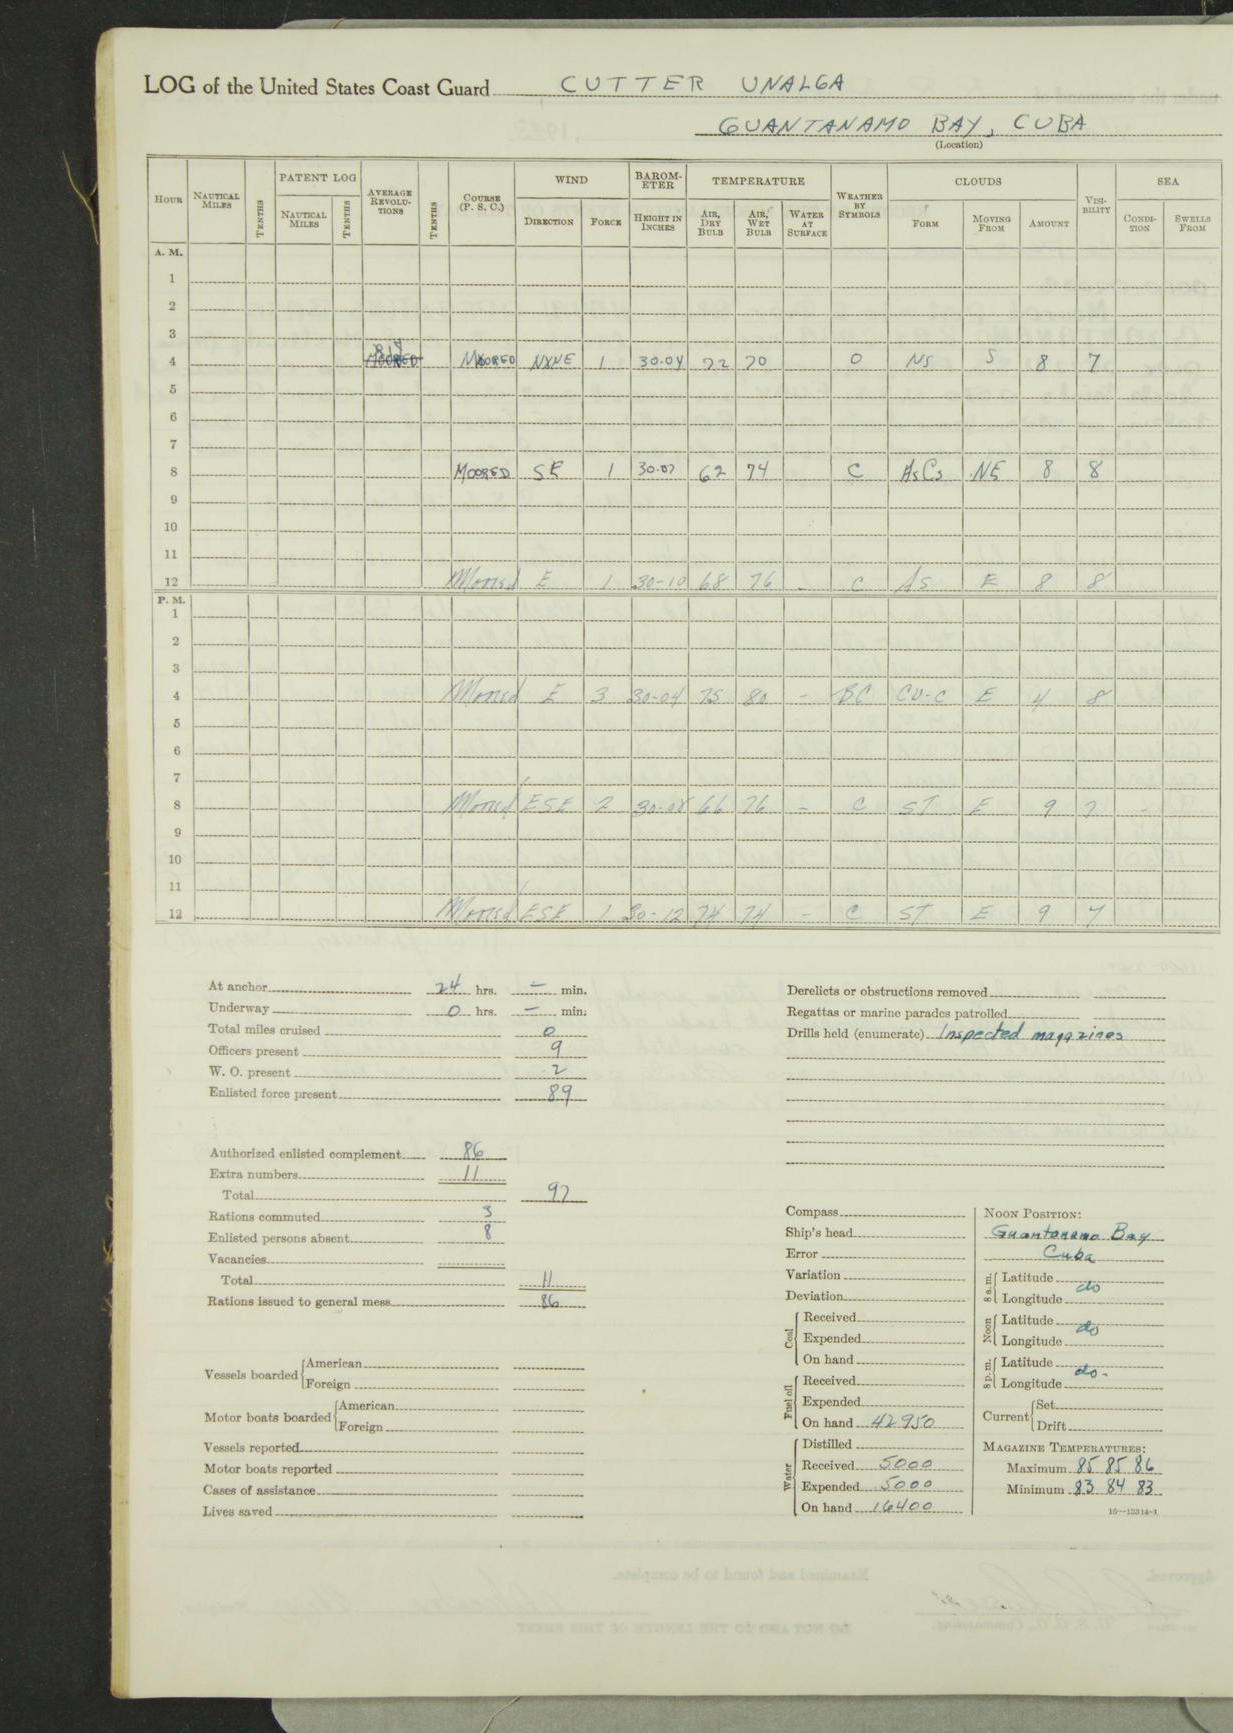 LOG of the United States Coast Guard CUTTER UNALGA
GUANTANAMO BAY, CUBA
(Location)
HOUR NAUTICAL MILES TENTHS PATENT LOG NAUTICAL MILES TENTHS AVERAGE REVOLUTIONS TENTHS COURSE (P. S. C.) WIND DIRECTION FORCE BAROMETER HEIGHT IN INCHES TEMPERATURE AIR, DRY BULB AIR, WET BULB WATER AT SURFACE WEATHER BY SYMBOLS CLOUDS FORM MOVING FROM AMOUNT VISIBILITY SEA CONDITION SWELLS FROM
A. M.
1
2
3
4 MOORED NXNE 1 30.04 72 70 O NS S 8 7
5
6
7
8 MOORED SE 1 30.07 62 74 C AsCs NE 8 8
9
10
11
12 Moored E 1 30-10 68 76 - C AS E 8 8
P. M.
1
2
3
4 Moored E 3 30-04 75 80 - BC CU-C E 4 8
5
6
7
8 Moored ESE 2 30-08 66 76 - C ST E 9 7
9
10
11
12 Moored ESE 1 30-12 74 74 - C ST E 9 7
At anchor 24 hrs. — min.
Underway 0 hrs. — min.
Total miles cruised 0
Officers present 9
W. O. present 2
Enlisted force present 89
Authorized enlisted complement 86
Extra numbers 11
Total 97
Rations commuted 3
Enlisted persons absent 8
Vacancies
Total 11
Rations issued to general mess 86
Vessels boarded American
Foreign
Motor boats boarded American
Foreign
Vessels reported
Motor boats reported
Cases of assistance
Lives saved
Derelicts or obstructions removed
Regattas or marine parades patrolled
Drills held (enumerate) Inspected magazines
Compass
Ship's head
Error
Variation
Deviation
Coal Received
Expended
On hand
Fuel oil Received
Expended
On hand 42950
Water Distilled
Received 5000
Expended 5000
On hand 16400
NOON POSITION:
Guantanamo Bay
Cuba
8 a. m. Latitude
do
Longitude
Noon Latitude
do
Longitude
8 p. m. Latitude
do-
Longitude
Current Set
Drift
MAGAZINE TEMPERATURES:
Maximum 85 85 86
Minimum 83 84 83